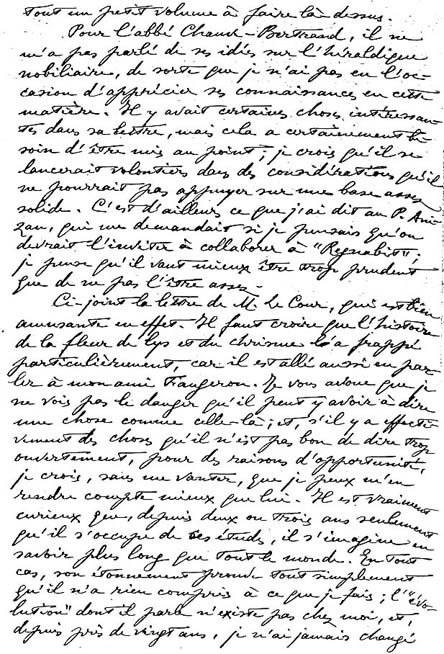 tout un petit volume à faire là-dessus.
Pour l'abbé Chauve-Bertrand, il ne
m'a pas parlé de ses idées sur l'héraldique
nobiliaire, de sorte que je n'ai pas eu l'oc-
casion d'apprécier ses connaissances en cette
matière. Il y avait certaines choses intéressan-
tes dans sa lettre, mais cela a certainement be-
soin d'être mis au point; je crois qu'il se
lancerait volontiers dans des considérations qu'il
ne pourrait pas appuyer sur une base assez
solide. C'est d'ailleurs ce que j'ai dit au P. Ani-
zan, qui me demandait si je pensais qu'on
devrait l'inviter à collaborer à "Regnabit";
je pense qu'il vaut mieux être trop prudent
que de ne pas l'être assez.
Ci-joint la lettre de M. Le Cour, qui est bien
amusante en effet. Il faut croire que l'histoire
de la fleur de lys et du chrisme l'a frappé
particulièrement, car il est allé aussi en par-
ler à mon ami Faugeron. Je vous avoue que je
ne vois pas le danger qu'il peut y avoir à dire
une chose comme celle-là; et, s'il y a effecti-
vement des choses qu'il n'est pas bon de dire trop
ouvertement, pour des raisons d'opportunité,
je crois, sans me vanter, que je peux m'en
rendre compte mieux que lui. Il est vraiment
curieux que, depuis deux ou trois ans seulement
qu'il s'occupe de ces études, il s'imagine en
savoir plus long que tout le monde. En tout
cas, son étonnement prouve tout simplement
qu'il n'a rien compris à ce que je fais; l'"évo-
lution" dont il parle n'existe pas chez moi, et,
depuis près de vingt ans, je n'ai jamais changé